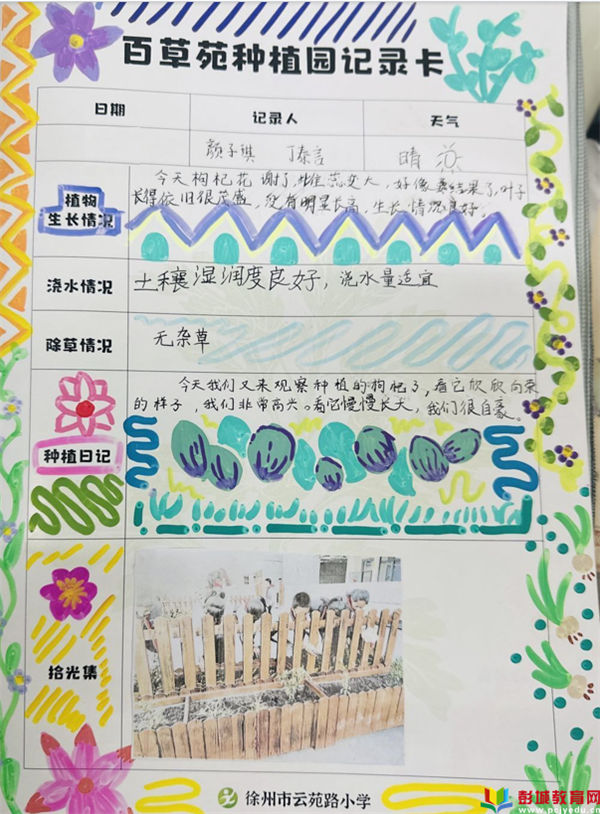 百草苑种植园记录卡
日期 记录人 天气
颜子琪 丁泰言 晴
植物
生长情况
今天枸杞花谢了,花蕊变大,好像要结果了,叶子
长得依旧很茂盛,没有明显长高,生长情况良好。
浇水情况 土穰湿润度良好,浇水量适宜
除草情况 无杂草
种植日记
今天我们又来观察种植的枸杞了,看它欣欣向荣
的样子,我们非常高兴。看它慢慢长大,我们很自豪。
拾光集
徐州市云苑路小学
彭城教育网
www.pcjyedu.cn